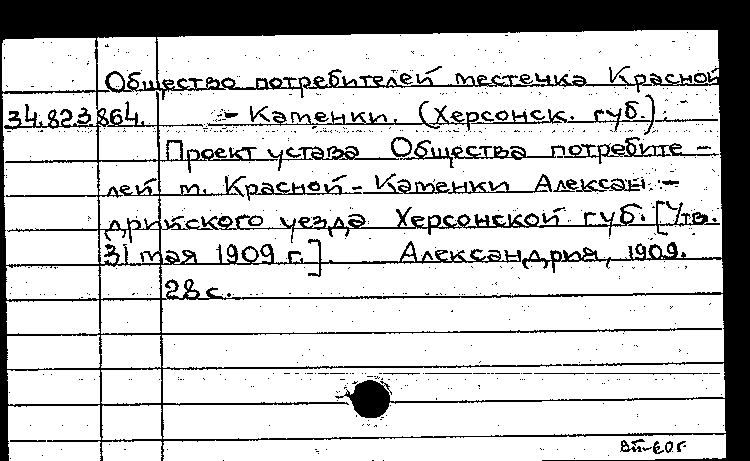 Общество потребителей местечка Красной
34.823864. - Каменки. (Херсонск. губ.).
Проект устава Общества потребите -
лей м. Красной - Каменки Алексан -
дрийского уезда Херсонской губ. [Утв.
31 мая 1909 г.]. Александрия, 1909.
28 с.